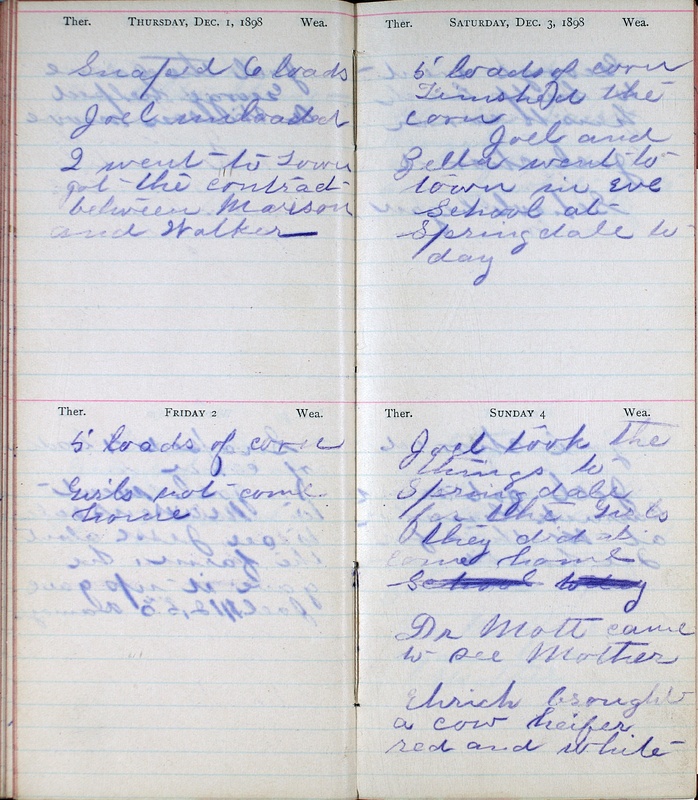 Ther. THURSDAY, DEC. 1, 1898 Wea.
Snaped 6 loads
Joel unloaded
I went to town
got the contract
between Marison
and Walker
Ther. FRIDAY 2 Wea.
5 loads of corn
Girls not come
home
Ther. SATURDAY, DEC. 3, 1898 Wea.
5 loads of corn
Finished the
corn
Joel and
Zella went to
town in eve
School at
Springdale to
day
Ther. SUNDAY 4 Wea.
Joel took the
things to
Springdale
for the Girls
they did not
come home
School today
Dr Mott came
to see Mother
Ehrich brought
a cow heifer
red and white